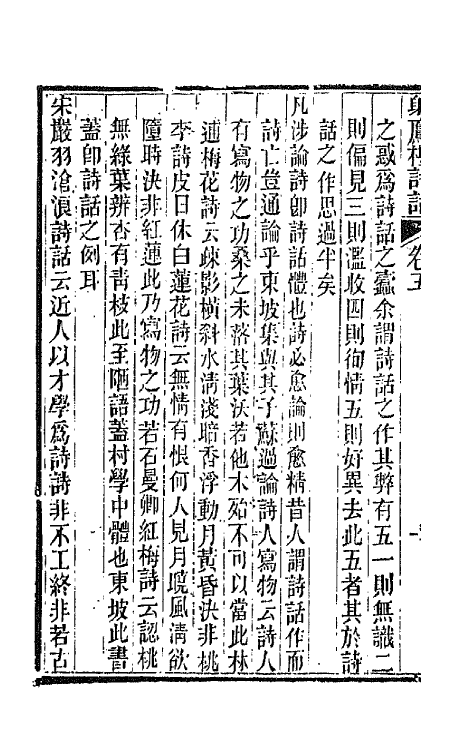 射鷹樓詩話 卷五
之惑爲詩話之蠹余謂詩話之作其弊有五一則無識二
則偏見三則濫收四則徇情五則好異去此五者其於詩
話之作思過半矣
凡涉論詩卽詩話體也詩必愈論則愈精昔人謂詩話作而
詩亡豈通論乎東坡集與其子蘇過論詩人寫物云詩人
有寫物之功桑之未落其葉沃若他木殆不可以當此林
逋梅花詩云疎影橫斜水淸淺暗香浮動月黃昏決非桃
李詩皮日休白蓮花詩云無情有恨何人見月曉風淸欲
墮時決非紅蓮此乃寫物之功若石曼卿紅梅詩云認桃
無綠葉辨杏有靑枝此至陋語蓋村學中體也東坡此書
蓋卽詩話之例耳
宋嚴羽滄浪詩話云近人以才學爲詩詩非不工終非若古